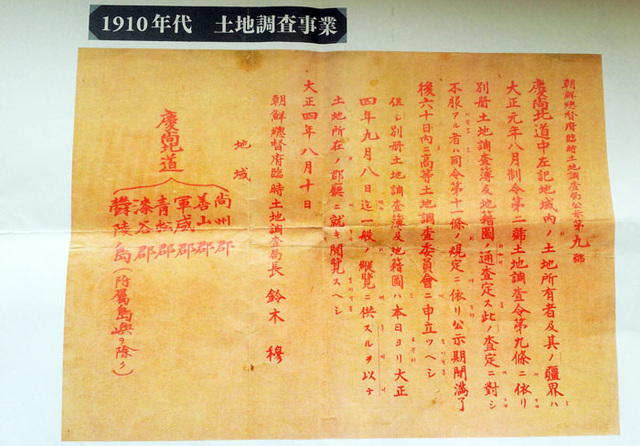 1910年代 土地調査事業
朝鮮總督府臨時土地調査局公示第九號
慶尚北道中左記地域內ノ土地所有者及其ノ疆界ハ
大正元年八月制令第二號土地調査令第九條ニ依リ
別册土地調査簿及地籍圖ノ通査定ス此ノ査定ニ對シ
不服アル者ハ同令第十一條ノ規定ニ依リ公示期間滿了
後六十日內ニ高等土地調査委員會ニ申立ツヘシ
但シ別册土地調査簿及地籍圖ハ本日ヨリ大正
四年九月八日迄一般ノ縱覽ニ供スルヲ以テ
土地所在ノ郡廳ニ就キ閱覽スヘシ
大正四年八月十日
朝鮮總督府臨時土地調査局長 鈴木 穆
地域
慶尚北道
尚州郡
善山郡
軍威郡
青松郡
漆谷郡
欝陵島（附屬島嶼ヲ除ク）